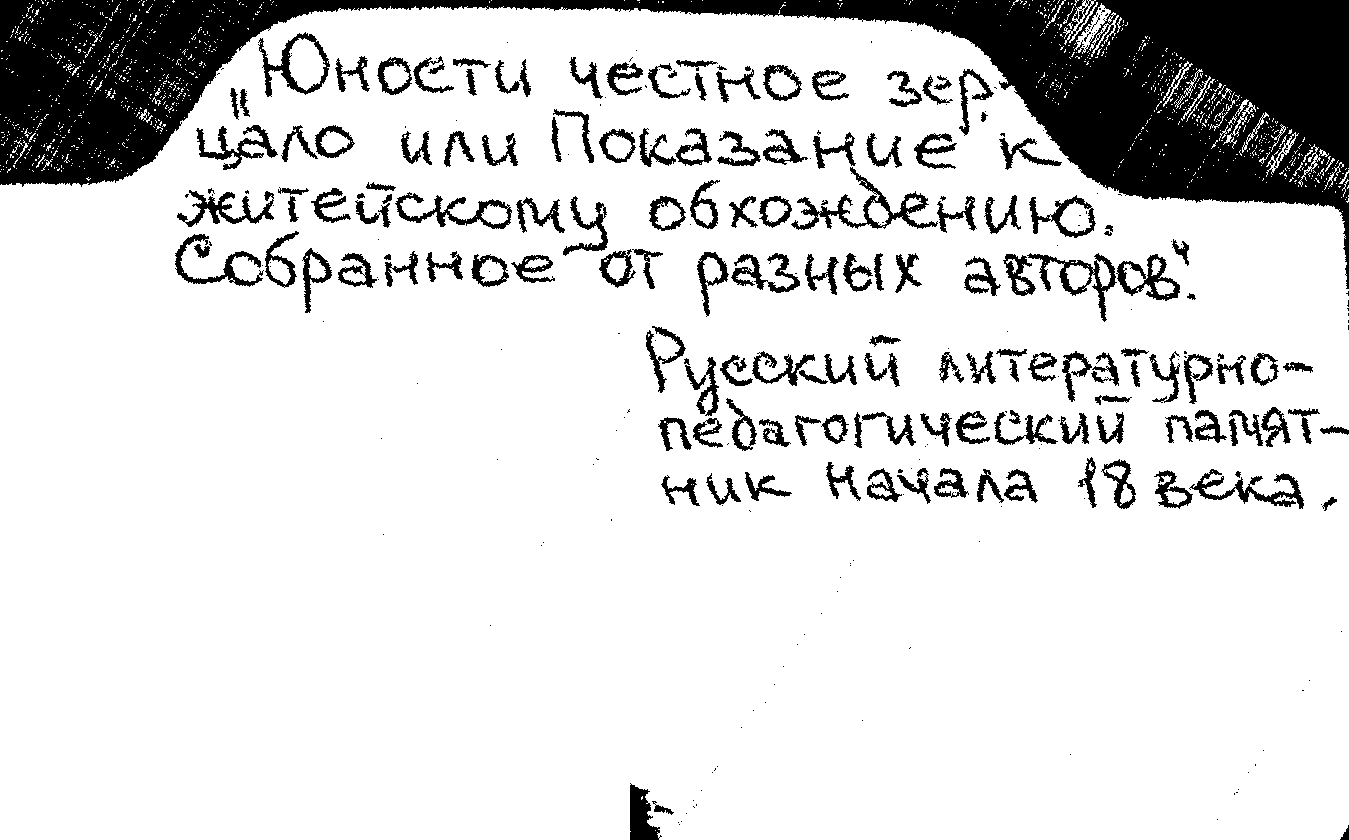 „Юности честное зер-
цало или Показание к
житейскому обхождению.
Собранное от разных авторов".
Русский литературно-
педагогический памят-
ник начала 18 века.